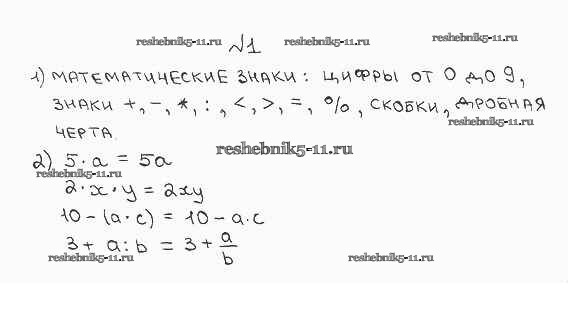 reshebnik5-11.ru №1 reshebnik5-11.ru reshebnik5-11.ru
1) МАТЕМАТИЧЕСКИЕ ЗНАКИ: ЦИФРЫ ОТ 0 ДО 9,
ЗНАКИ +, -, *, :, <, >, =, %, СКОБКИ, ДРОБНАЯ
reshebnik5-11.ru
ЧЕРТА.
reshebnik5-11.ru
2) 5·a = 5a
reshebnik5-11.ru
2·x·y = 2xy
10-(a·c) = 10-a·c
3+ a:b = 3+ a/b
reshebnik5-11.ru reshebnik5-11.ru